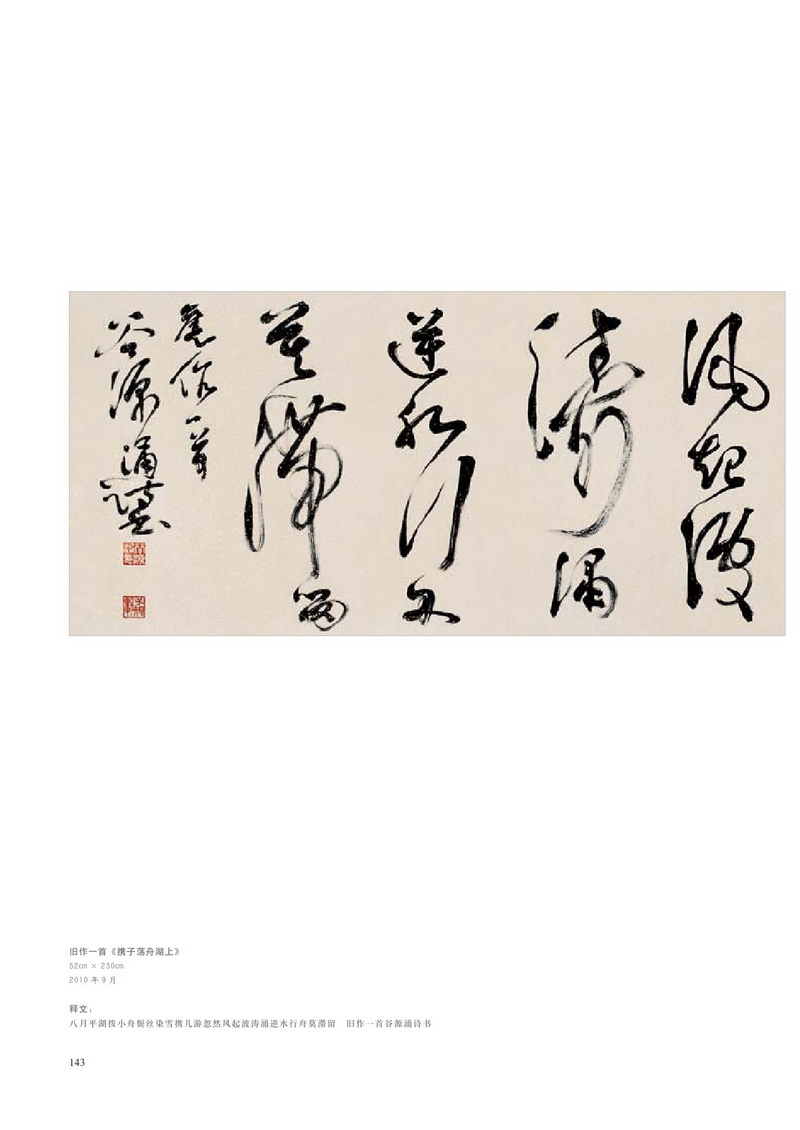 风起波
涛涌
逆水行舟
莫滞留
旧作一首
谷源涌诗书
旧作一首《携子荡舟湖上》
52cm × 230cm
2010 年 9 月
释文：
八月平湖拨小舟鬓丝染雪携儿游忽然风起波涛涌逆水行舟莫滞留　旧作一首谷源涌诗书
143